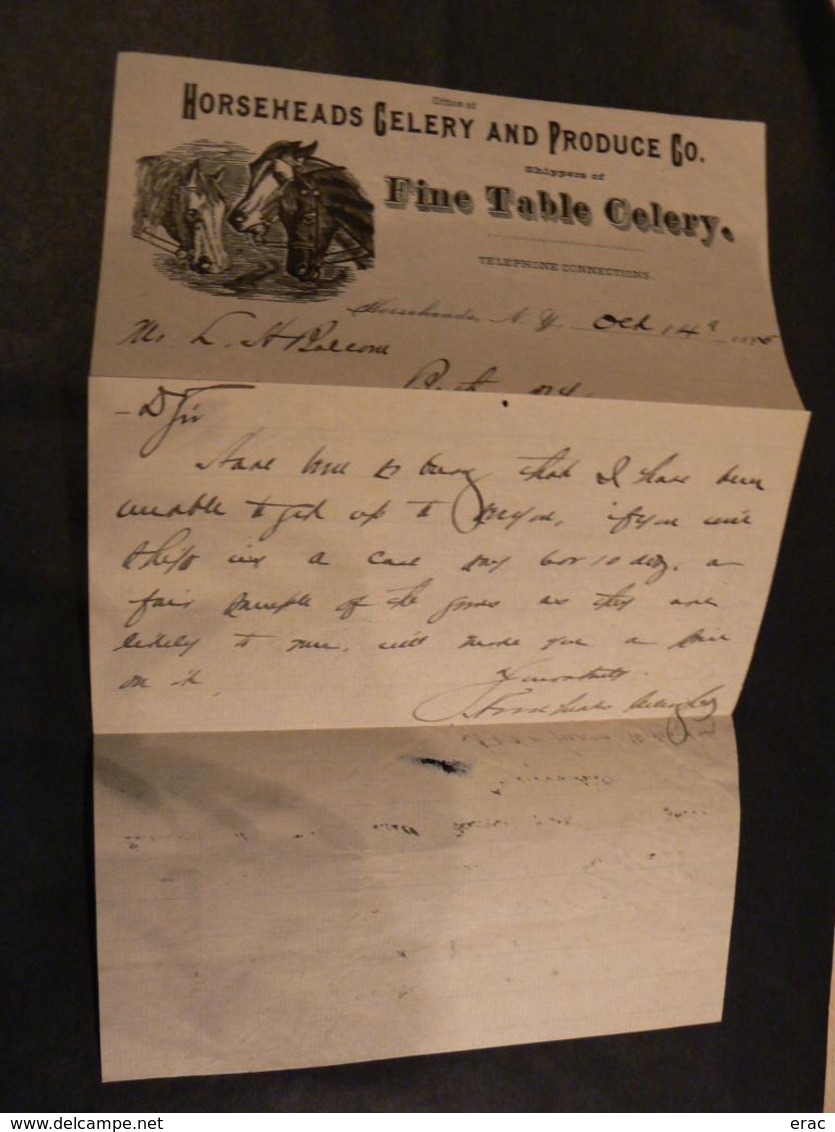 Office of
HORSEHEADS CELERY AND PRODUCE CO.
Shippers of
Fine Table Celery.
TELEPHONE CONNECTIONS.
Horseheads, N. Y. Oct 14
Mr L. H Balcom
D Sir
that I have been
unable to get up to see you, if you will
ship us a case say or 10 doz. a
fair sample of the goods as they are
likely to run, will made you a price
on it.
Yours truly
Horseheads Celery Co
© Delcampe.net
erac